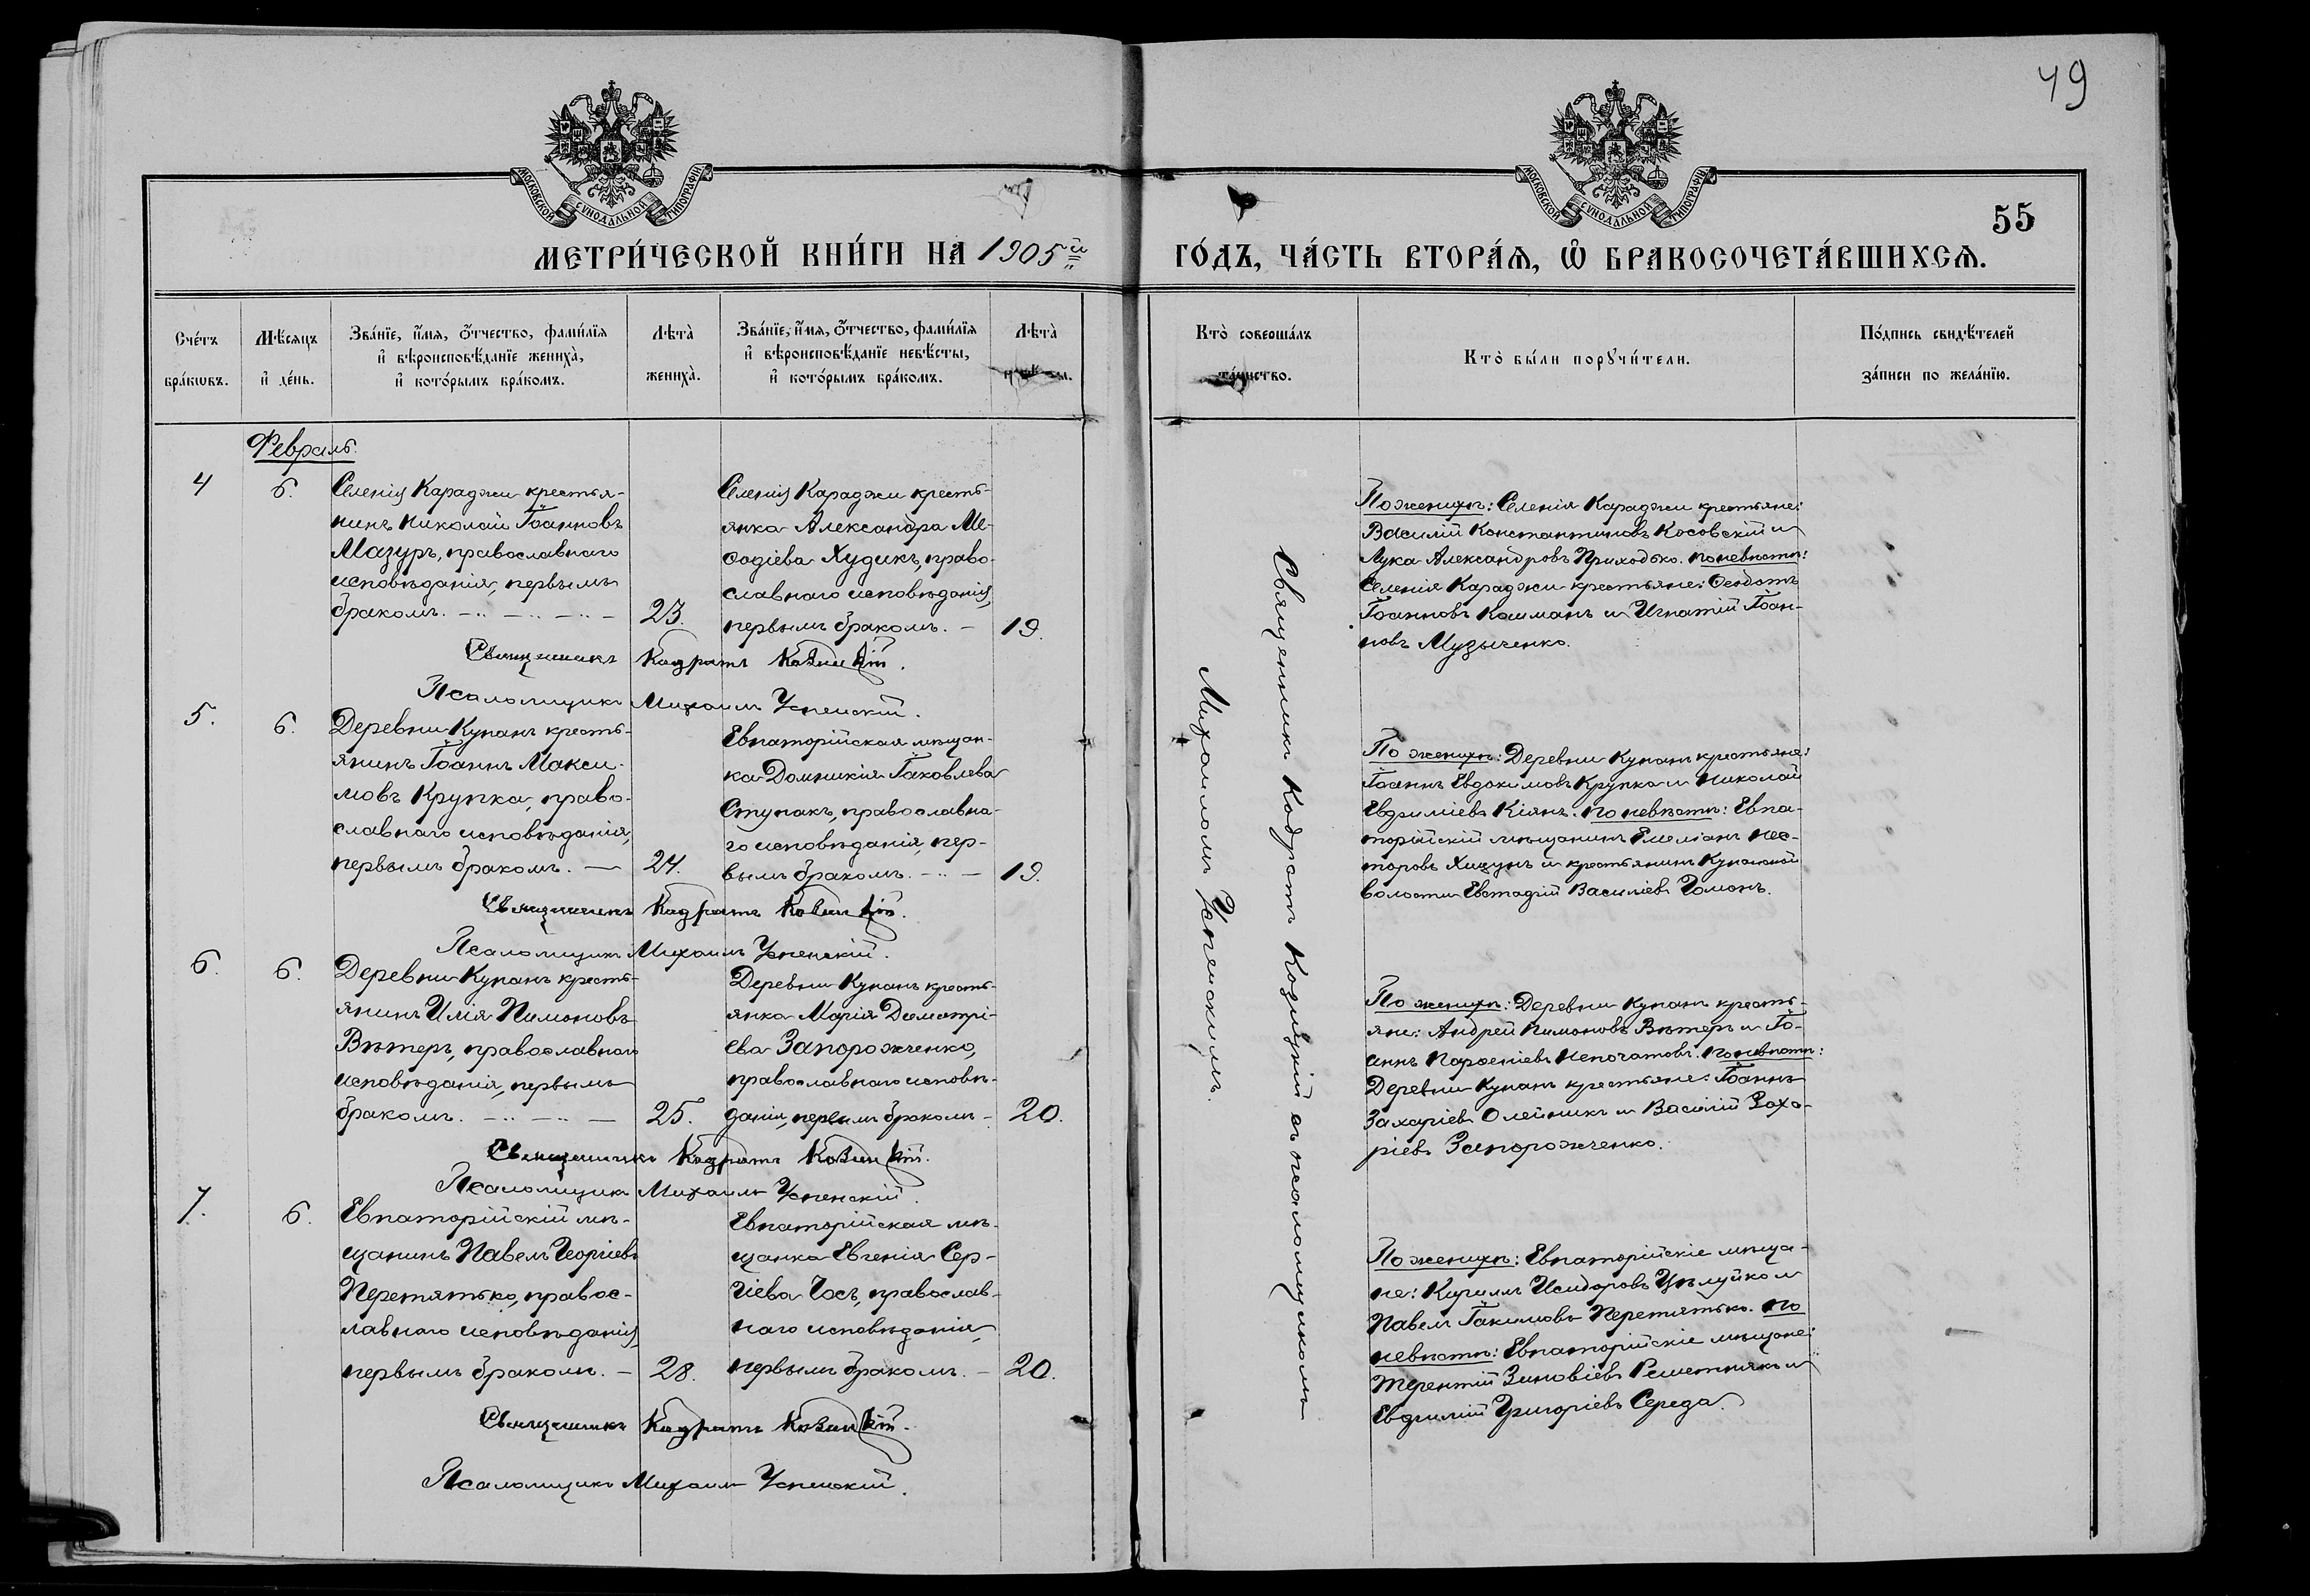 49
МОСКОВСКОЙ СѴНОДАЛЬНОЙ ТИПОГРАФІИ
МОСКОВСКОЙ СѴНОДАЛЬНОЙ ТИПОГРАФІИ
55
МЕТРИ́ЧЕСКОЙ КНИ́ГИ НА 1905й
ГО́ДЪ, ЧА́СТЬ ВТОРА́Ѧ, Ѡ҆ БРАКОСОЧЕТА́ВШИХСѦ.
Сче́тъ бра́кѡвъ.
Мѣ́сяцъ и҆ де́нь.
Зва́нїе, и҆́мя, ѻ҆́тчество, фами́лїя
и҆ вѣроисповѣ́данїе жениха̀,
и҆ кото́рымъ бра́комъ.
Лѣта̀ жениха̀.
Зва́нїе, и҆́мя, ѻ҆́тчество, фами́лїя
и҆ вѣроисповѣ́данїе невѣ́сты,
и҆ кото́рымъ бра́комъ.
Лѣта̀
Кто̀ соверша́лъ
та́инство.
Кто̀ бы́ли порꙋчи́тели.
По́дпись свидѣ́телей
за́писи по жела́нїю.
Февраль.
4
6.
Селенія Караджи крестья-
нинъ Николай Іоанновъ
Мазуръ, православнаго
исповѣданія, первымъ
бракомъ.
23.
Селенія Караджи кресть-
янка Александра Ме-
ѳодіева Худикъ, право-
славнаго исповѣданія,
первымъ бракомъ.
19.
По женихѣ: Селенія Караджи крестьяне:
Василій Константиновъ Косовскій и
Лука Александровъ Приходько. По невѣстѣ:
Селенія Караджи крестьяне: Ѳеодотъ
Іоанновъ Кошманъ и Игнатій Іоан-
новъ Музыченко.
Священникъ Кодратъ Козицкій.
Псаломщикъ Михаилъ Успенскій.
5.
6.
Деревни Кунанъ кресть-
янинъ Іоаннъ Макси-
мовъ Крупка, право-
славнаго исповѣданія,
первымъ бракомъ.
24.
Евпаторійская мѣщан-
ка Домникія Іаковлева
Ступакъ, православна-
го исповѣданія, пер-
вымъ бракомъ.
19.
По женихѣ: Деревни Кунанъ крестьяне:
Іоаннъ Евдокимовъ Крупка и Николай
Евфиміевъ Кіянъ. По невѣстѣ: Евпа-
торійскій мѣщанинъ Емеліанъ Нес-
торовъ и крестьянинъ Кунанской
волости Евстафій Василіевъ Гомонъ.
Священникъ Кодратъ Козицкій.
Псаломщикъ Михаилъ Успенскій.
6.
6.
Деревни Кунанъ кресть-
янинъ Илія Пимоновъ
Вѣтеръ, православнаго
исповѣданія, первымъ
бракомъ.
25.
Деревни Кунанъ кресть-
янка Марія Димитрі-
ева Запорожченко,
православнаго исповѣ-
данія, первымъ бракомъ
20.
По женихѣ: Деревни Кунанъ кресть-
яне: Андрей Пимоновъ Вѣтеръ и Іо-
аннъ Парѳеніевъ Непочатовъ. По невѣстѣ:
Деревни Кунанъ крестьяне: Іоаннъ
Захаріевъ Олейникъ и Василій Заха-
ріевъ Запорожченко.
Священникъ Кодратъ Козицкій.
Псаломщикъ Михаилъ Успенскій.
7.
6.
Евпаторійскій мѣ-
щанинъ Павелъ Георгіевъ
Перетятько, правос-
лавнаго исповѣданія,
первымъ бракомъ.
28.
Евпаторійская мѣ-
щанка Евгенія Сер-
гіева Гось, православ-
наго исповѣданія,
первымъ бракомъ.
20.
По женихѣ: Евпаторійскіе мѣща-
не: Кириллъ Исидоровъ Цѣлуйко и
Павелъ Іакимовъ Перетятько. По
невѣстѣ: Евпаторійскіе мѣщане:
Терентій Зиновіевъ Решетнякъ и
Евфимій Григоріевъ Середа.
Священникъ Кодратъ Козицкій.
Псаломщикъ Михаилъ Успенскій.
Священникъ Кодратъ Козицкій съ псаломщикомъ
Михаиломъ Успенскимъ.